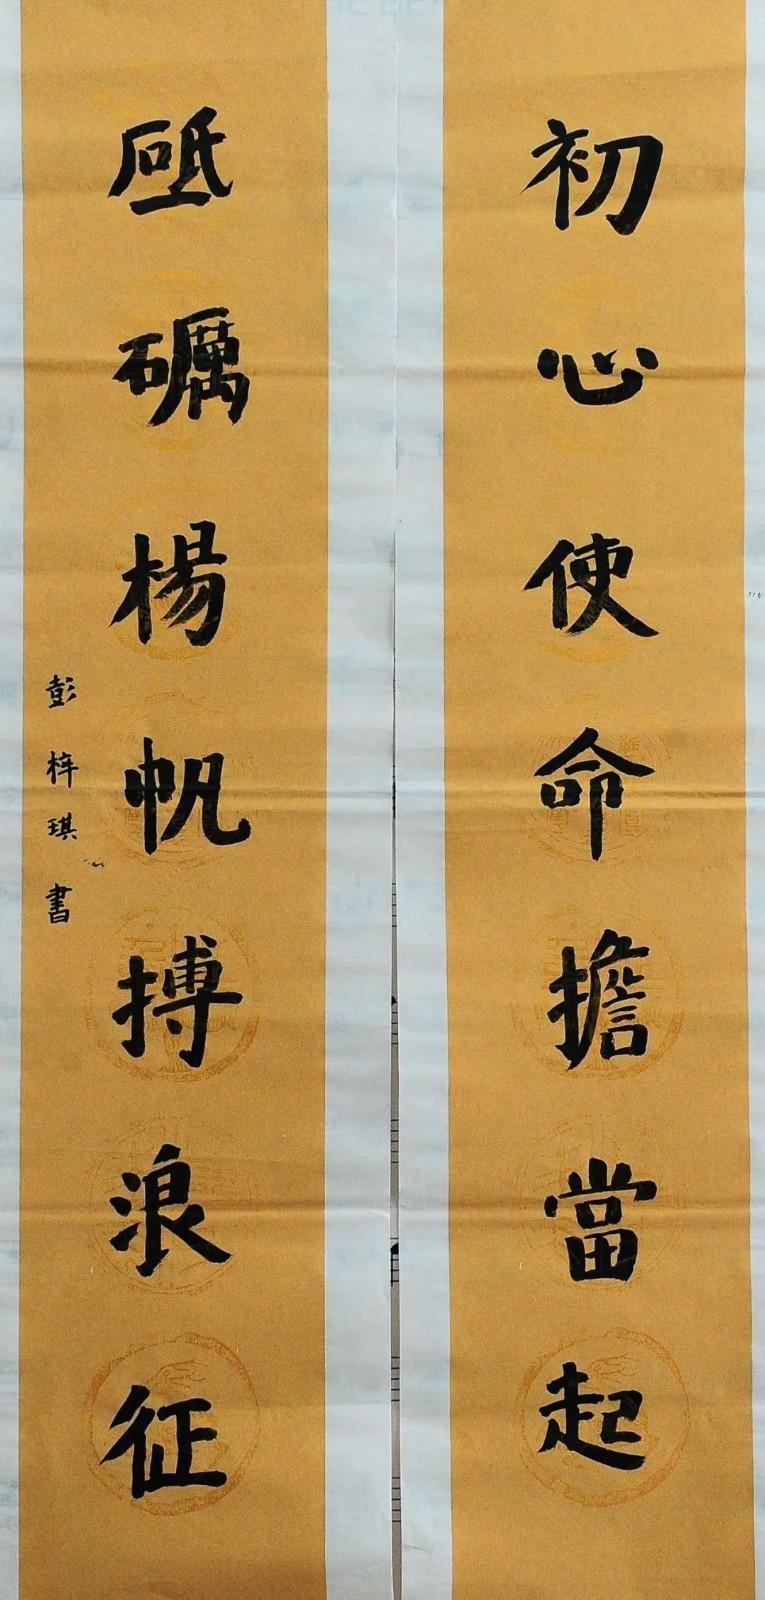 初心使命擔當起
砥礪楊帆搏浪征
彭梓琪書